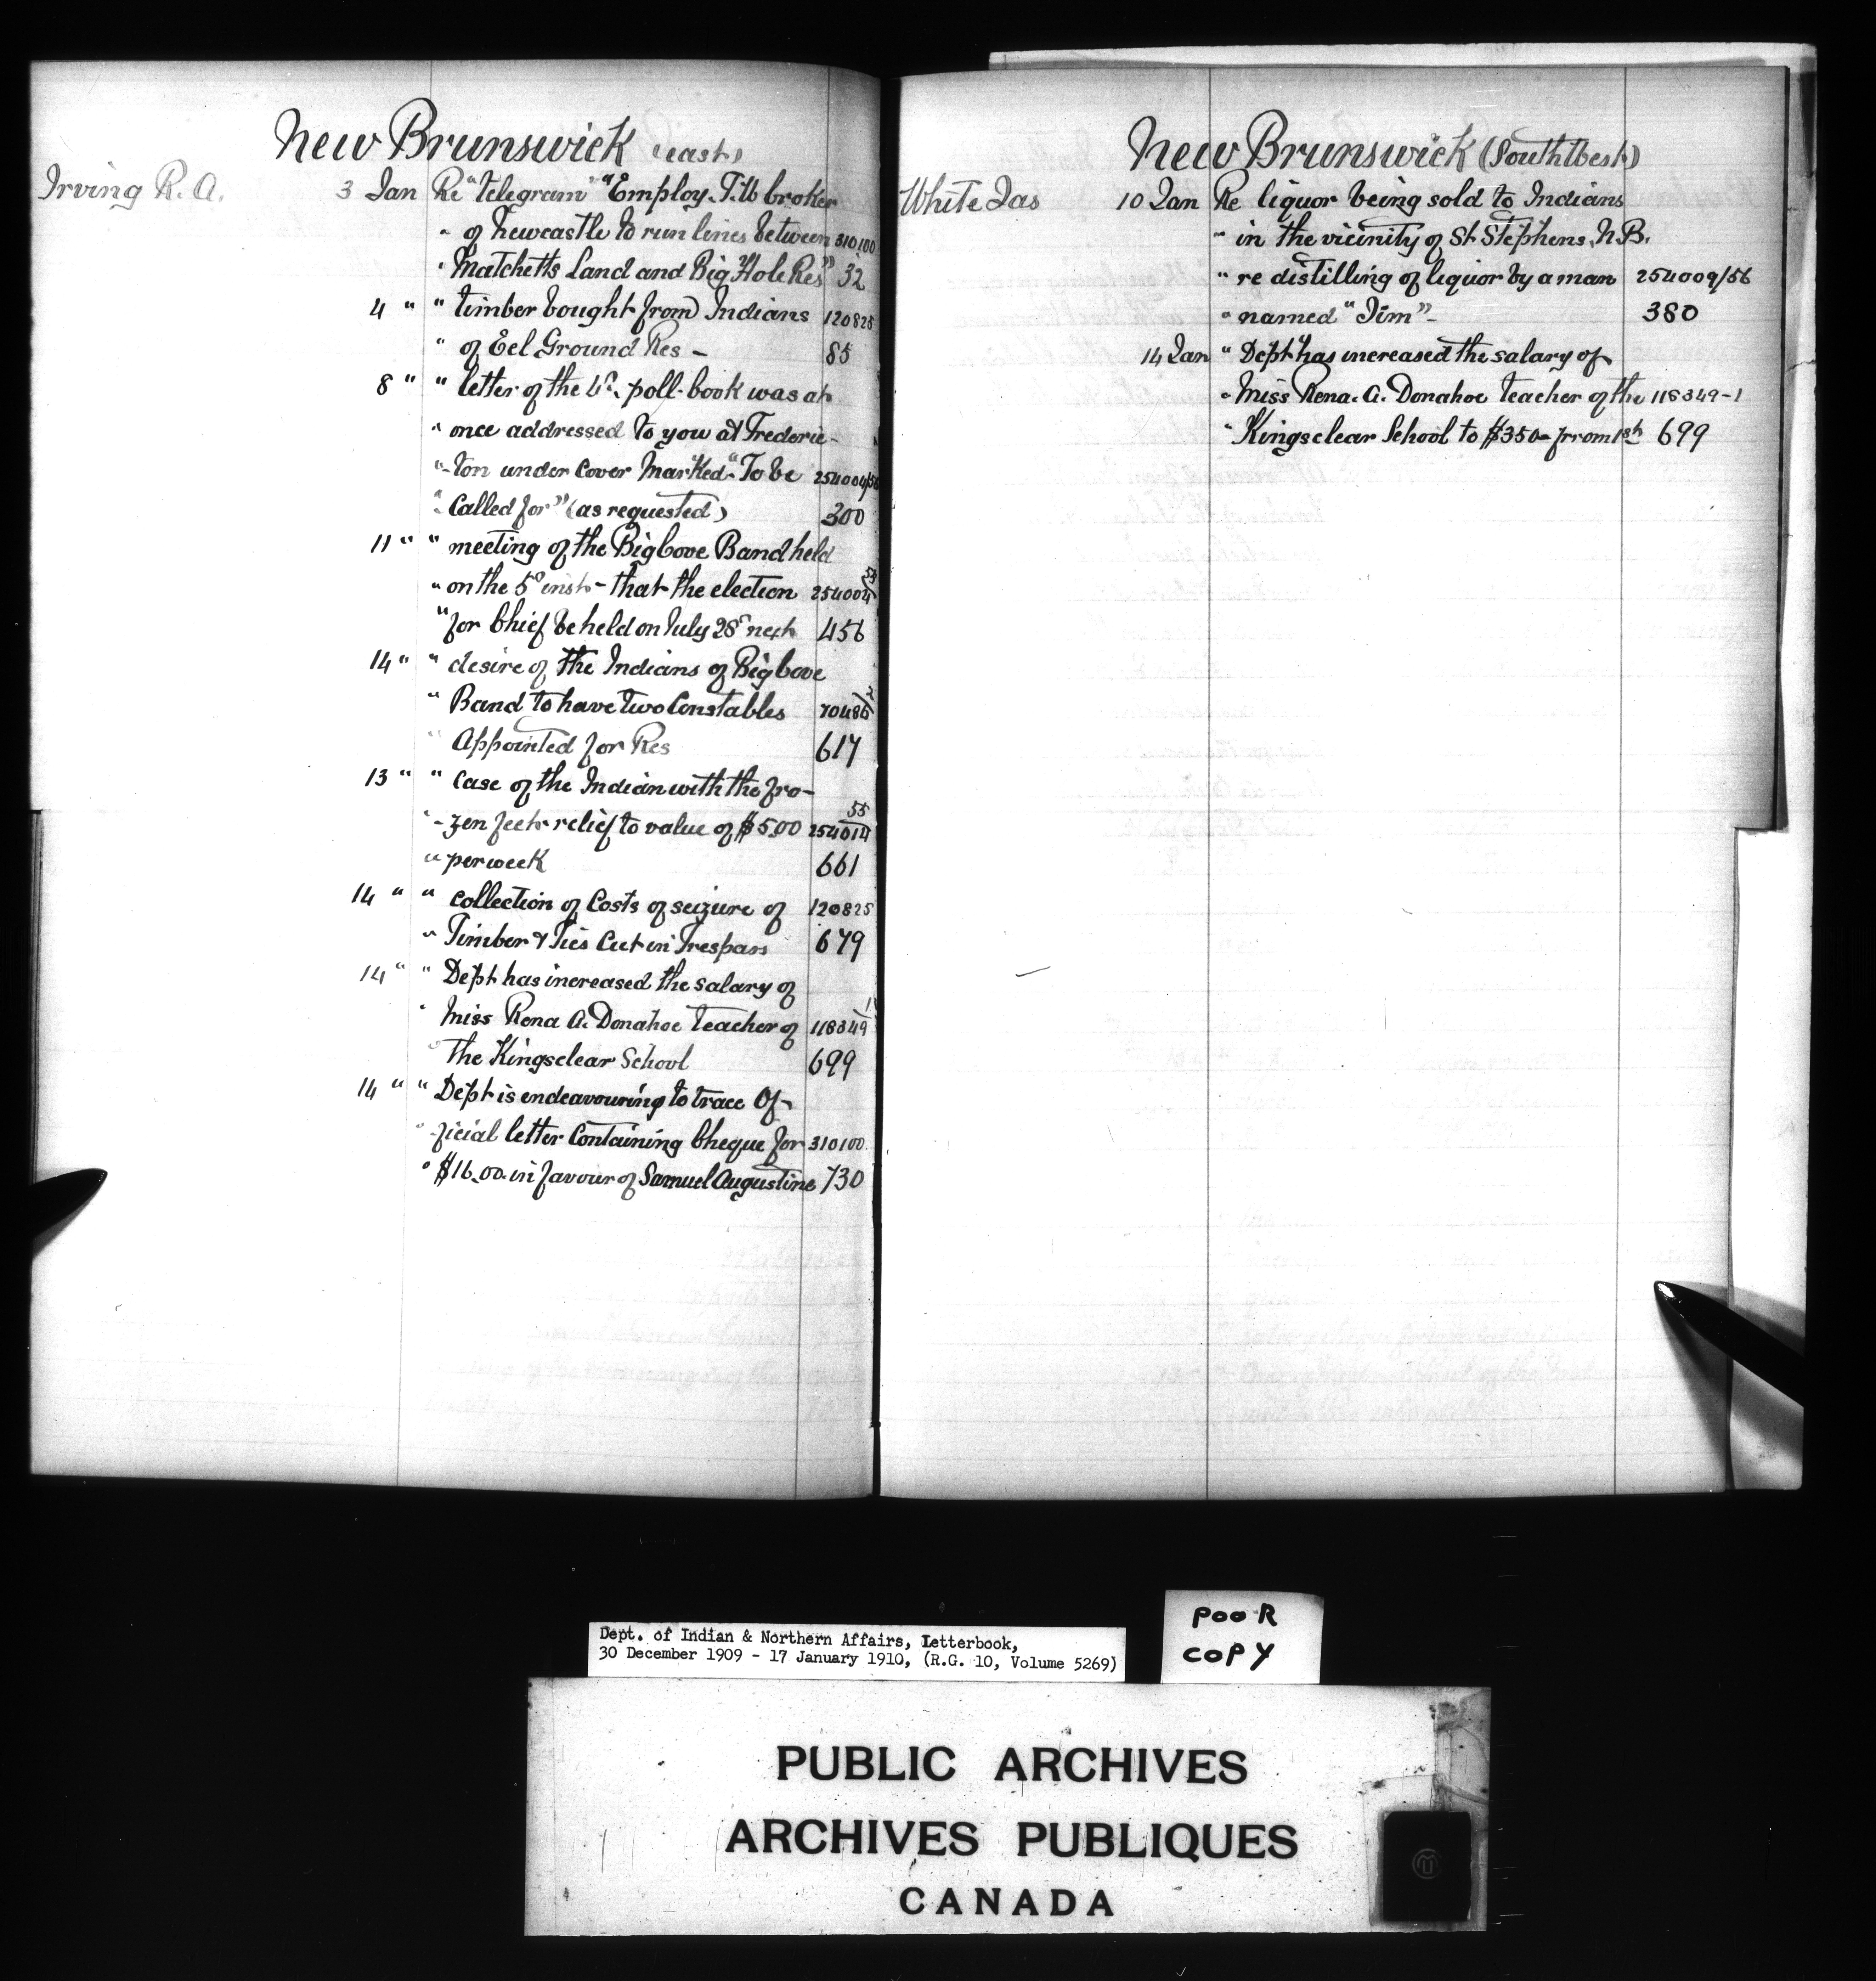 New Brunswick (East)
Irving R. A. 3 Jan Re "telegram" "Employ. T. W. Croker
" of Newcastle to run lines between 310100
" Matchetts Land and Big Hole Res" 32
4 " " timber bought from Indians 120825
" of Eel Ground Res - 85
8 " " letter of the 4th, poll-book was at
" once addressed to you at Frederic-
"-ton under Cover Marked "To be 254004/56
" Called for" (as requested) 300
11 " " meeting of the Big Cove Band held
" on the 5th inst - that the election 254004/53
" for Chief be held on July 28th next 456
14 " " desire of the Indians of Big Cove
" Band to have two Constables 70486/2
" Appointed for Res 617
13 " " case of the Indian with the fro-
"-zen feet relief to value of $5.00 254014/55
" per week 661
14 " " Collection of Costs of seizure of 120825
" Timber & Ties Cut in Trespass 679
14 " " Dept has increased the salary of
" Miss Rena A. Donahoe teacher of 118349/1
" The Kingsclear School 699
14 " " Dept is endeavouring to trace Of-
"-ficial letter Containing Cheque for 310100
" $16.00 in favour of Samuel Augustine 730
New Brunswick (South West)
White Jas 10 Jan Re liquor being sold to Indians
" in the vicinity of St Stephens, N.B.
" re distilling of liquor by a man 254009/56
" named "Jim" - 380
14 Jan " Dept has increased the salary of
" Miss Rena. A. Donahoe teacher of the 118349-1
" Kingsclear School to $350- from 1st 699
POOR
COPY
Dept. of Indian & Northern Affairs, Letterbook,
30 December 1909 - 17 January 1910, (R.G. 10, Volume 5269)
PUBLIC ARCHIVES
ARCHIVES PUBLIQUES
CANADA